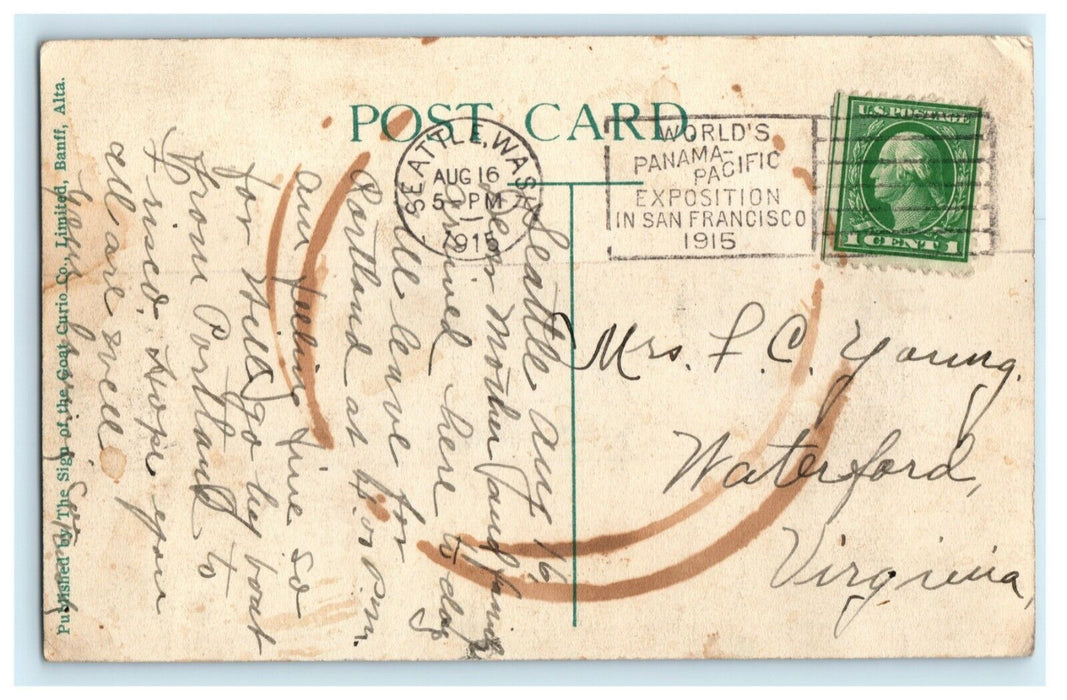 POST CARD
SEATTLE, WASH.
AUG 16
5-PM
1915
WORLD'S
PANAMA-
PACIFIC
EXPOSITION
IN SAN FRANCISCO
1915
U.S. POSTAGE
1 CENT 1
Mrs. F. C. Young.
Waterford,
Virginia,
Seattle Aug 16
Dear Mother and
arrived here to day
will leave for
Portland at
am feeling fine so
for Will go by boat
from Portland to
Frisco, Hope you
all are well
Published by The Sign of the Goat Curio Co., Limited, Banff, Alta.